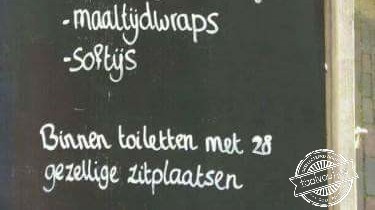 -maaltijdwraps
-softijs
Binnen toiletten met 28
gezellige zitplaatsen
taalvoutjes